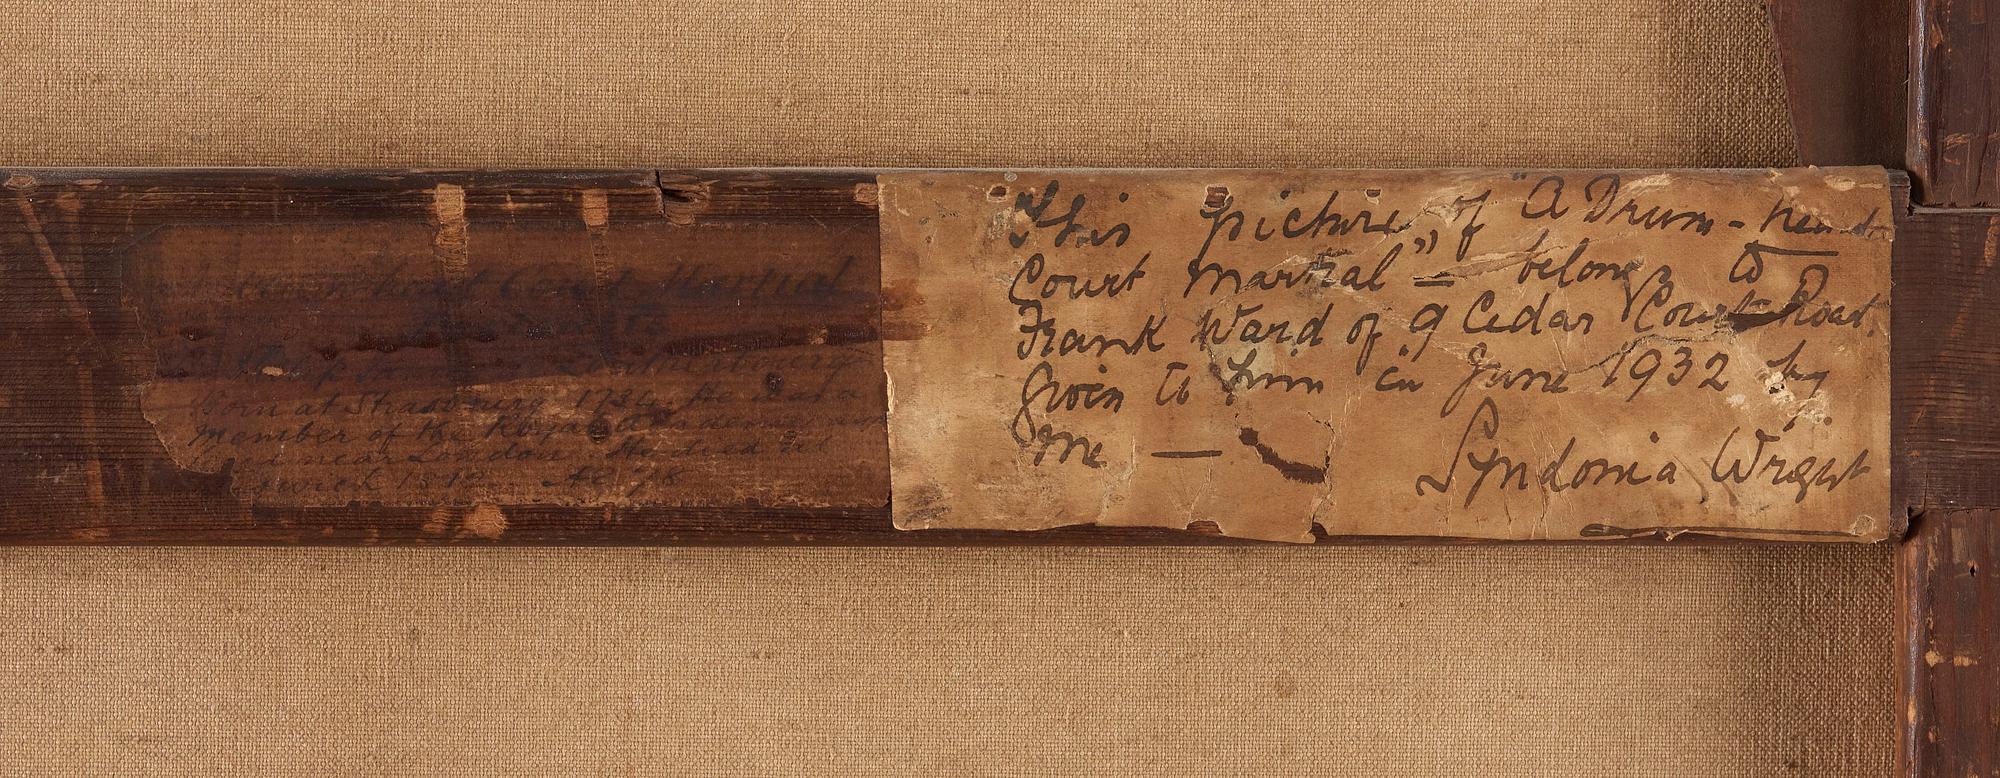 Court Martial
Loutherbourg
Born at Strasbourg 1734. He was a
member of the Royal Academy and
near London. He died at
1812
This picture of "A Drum-head
Court Martial" – belongs to
Frank Ward of 9 Cedar Court Road.
Given to him in June 1932 by
me —
Syndonia Wright